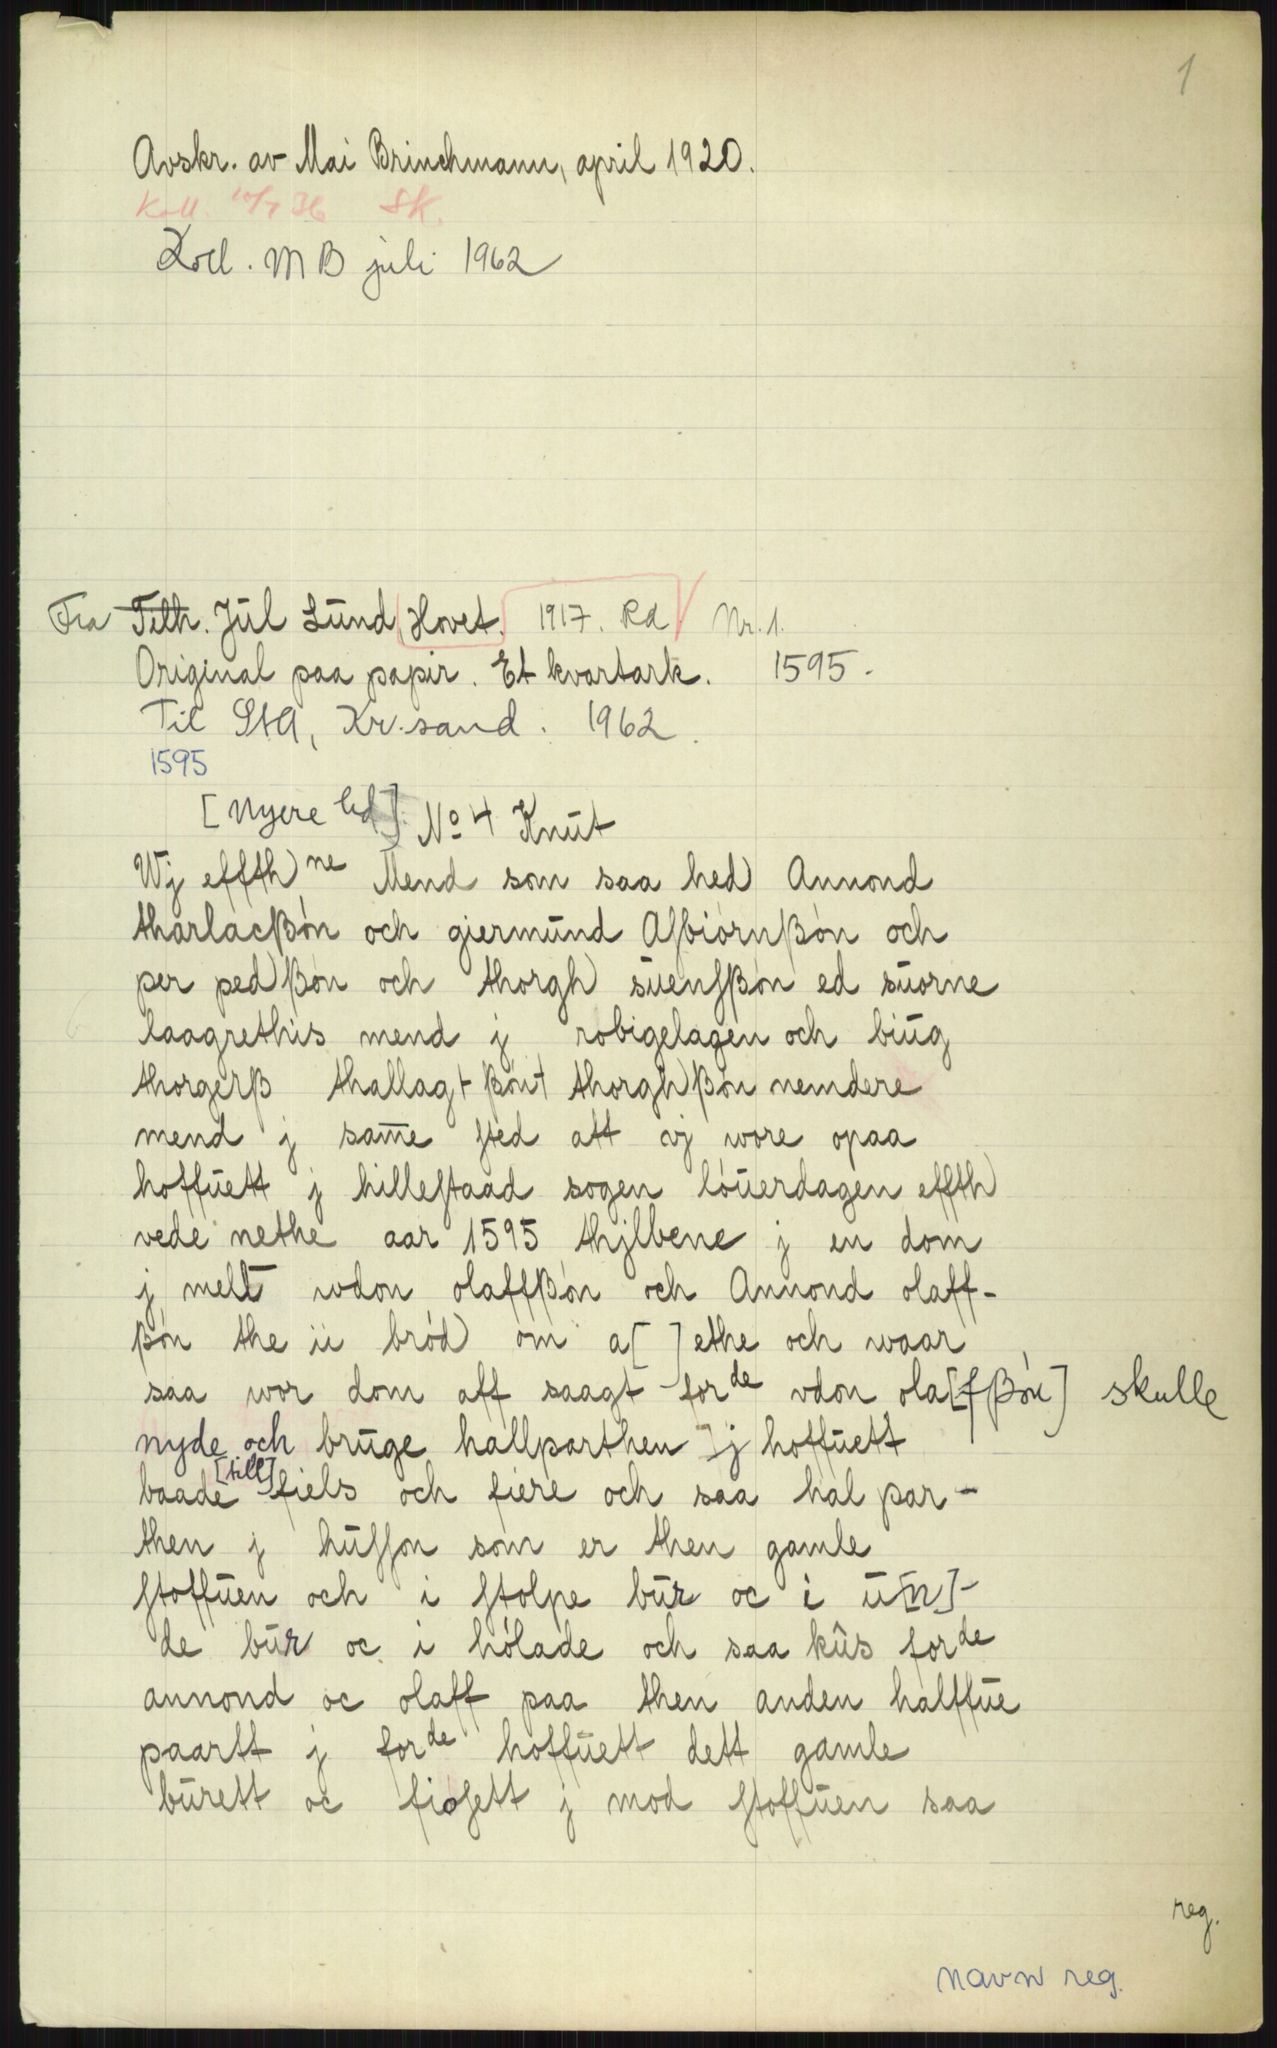 1
Avskr. av Mai Brinchmann, april 1920.
Koll. 10/7 36 SK.
Koll. MB juli 1962
Fra Tilh. Jul Lund Hovet. 1917. Rd Nr. 1.
Original paa papir. Et kvartark. 1595.
Til StA, Kr.sand. 1962.
1595
[Nyere hd] No 4 Knut
Wj effth) ne Mend som saa hed) Annond
tharlacßón och giermund Asbiornßón och
per ped)ßón och thorgh) suensßón ed suorne
laagrethis mend j robigelagen och biug
thorgerß thallagt ßónt thorgh)ßón nemdere
mend j sam̅e sted att vj wore opaa
hoffuett j hillestaad sogen lóuerdagen effth)
vede nethe aar 1595 thjlbene j en dom
j mellt wdon olaffßón och Annond olaff-
ßón the ii bród) om a[ ]ethe och waar
saa wor dom aff saagt for de vdon ola[fßón] skulle
nyde och bruge hallparthen j hoffuett
baade [till] fiels och fiere och saa hal par-
then j husson som er then gamle
stoffuen och i stolpe bur oc i u[n]-
de bur oc i hólade och saa kus for de
annond oc olaff paa then anden halffue
paartt j for de hoffuett dett gamle
burett oc fiosett j mod stoffuen saa
reg.
navn reg.